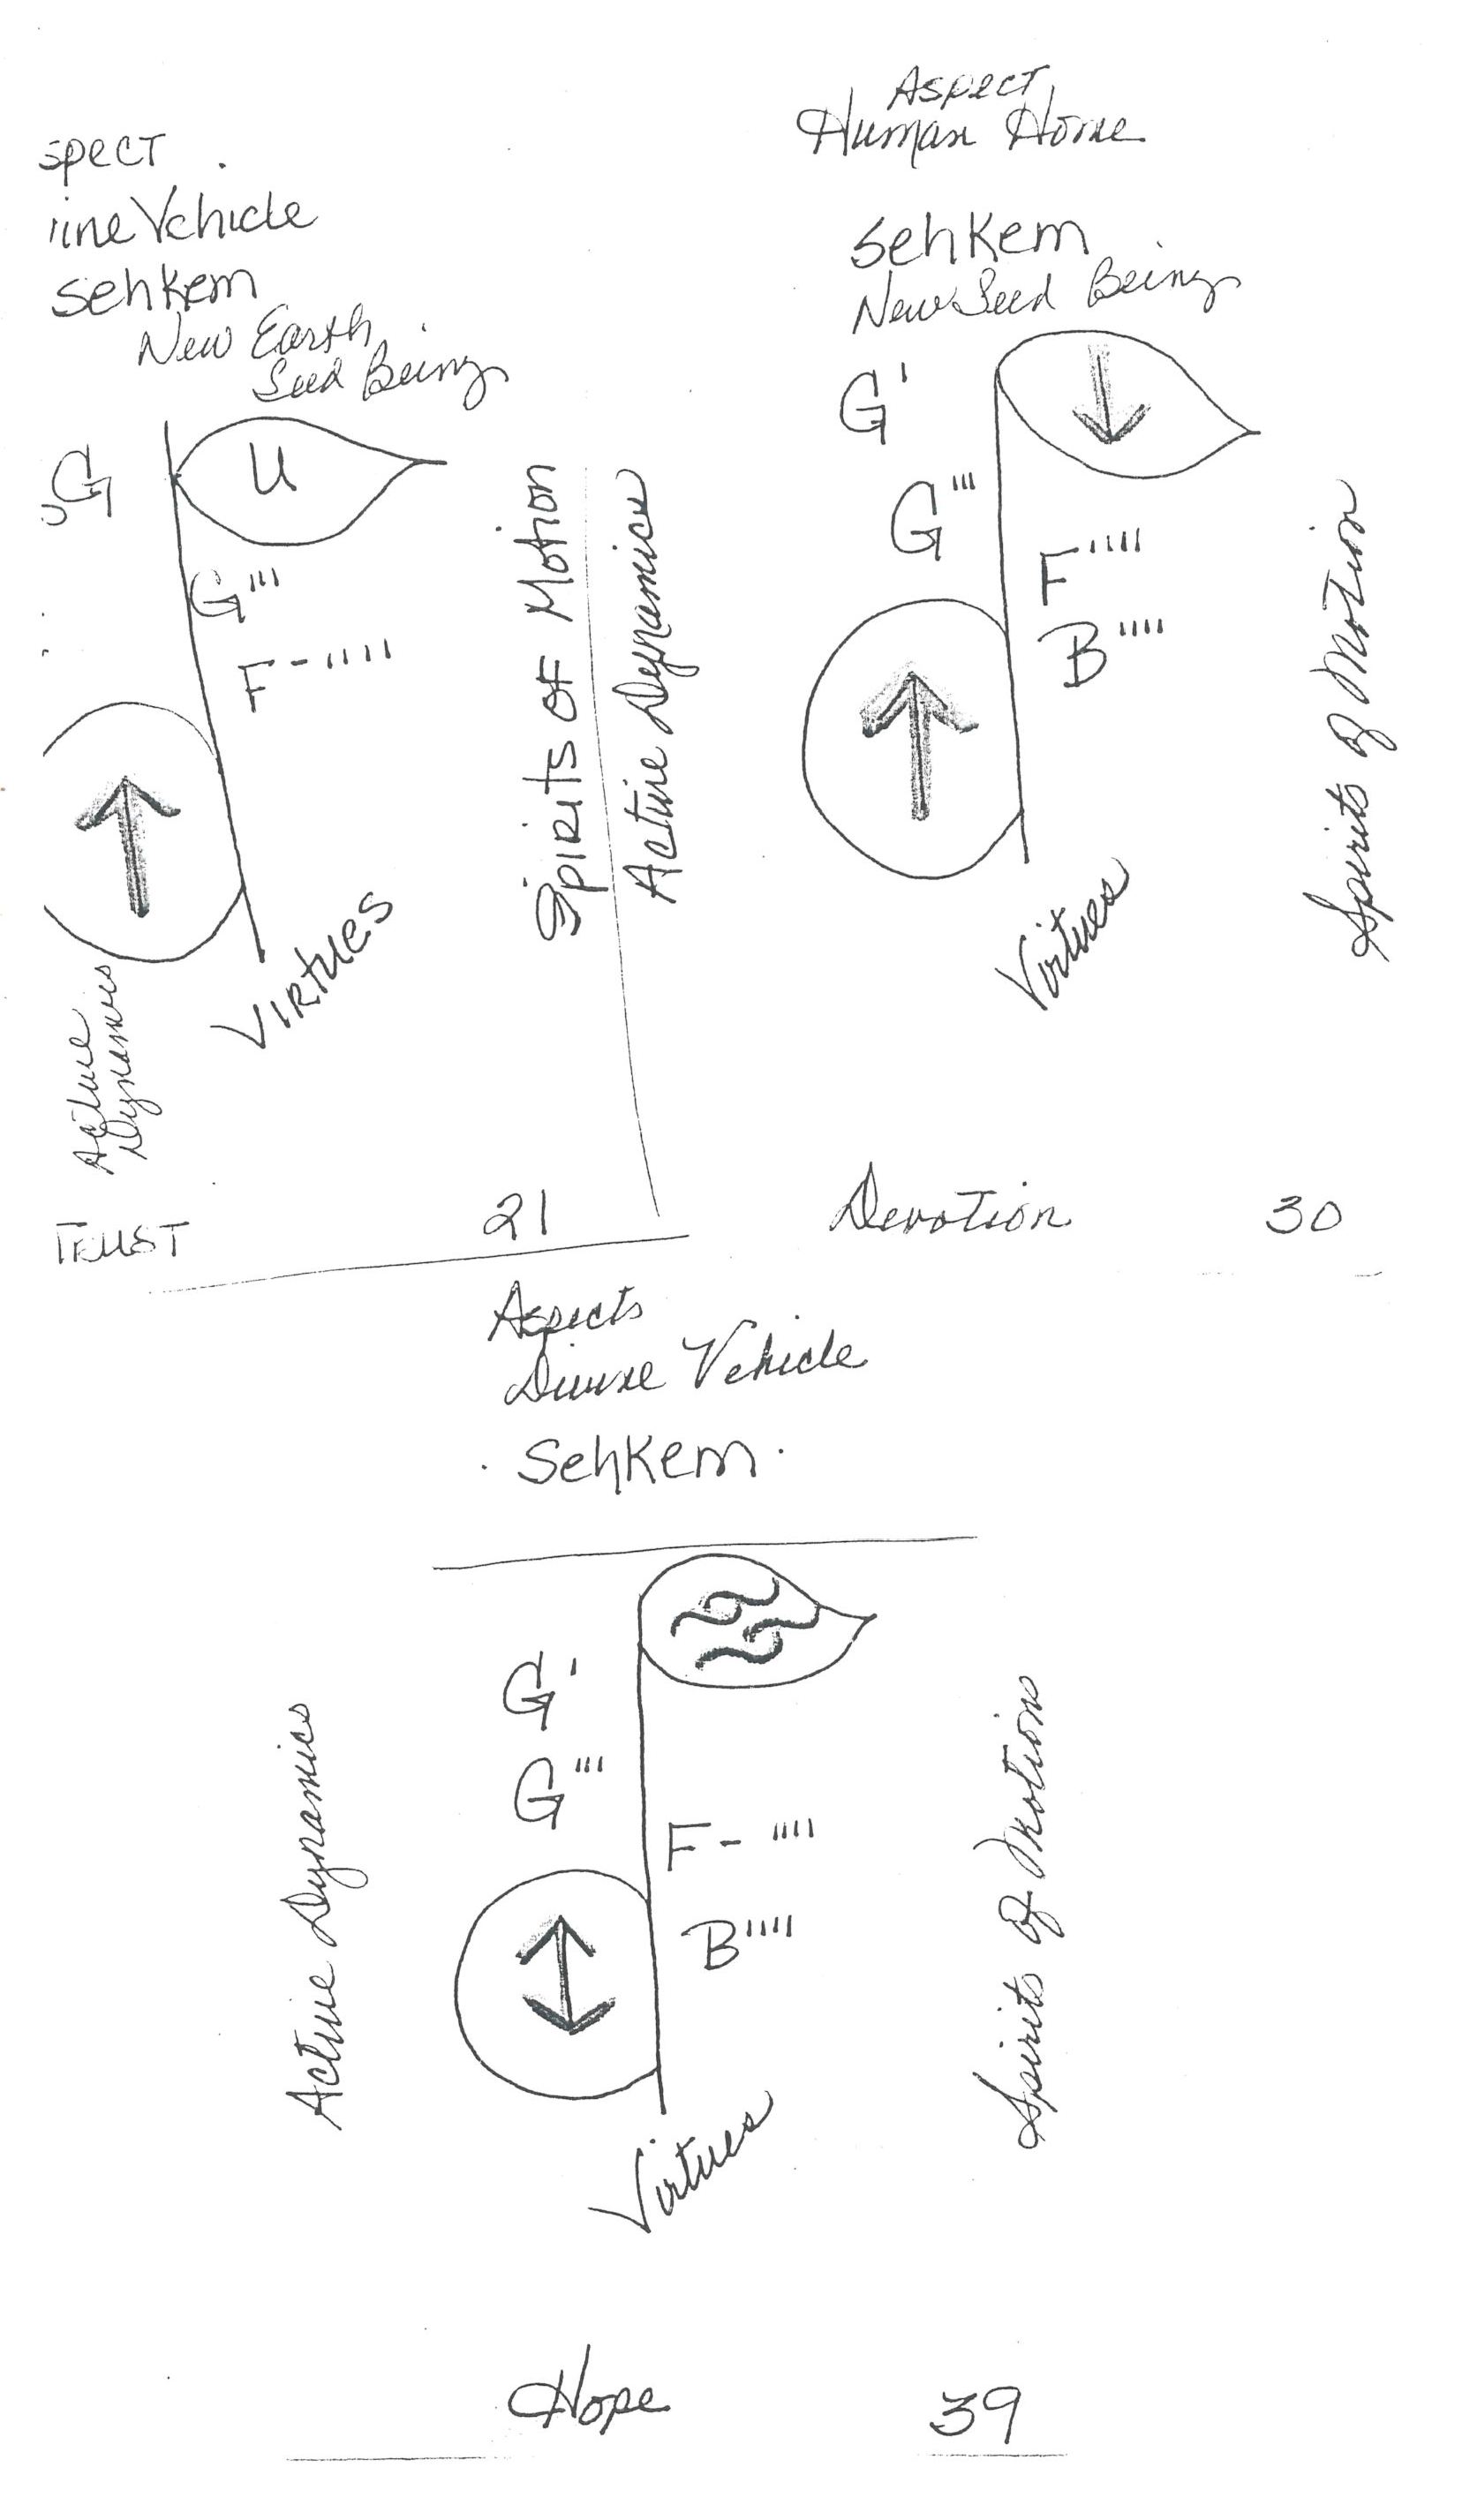 spect
ine Vehicle
sehkem
New Earth
Seed Being
G
U
G'''
F-'''''
Active
Dynamics
Virtues
Spirits of Motion
TRUST
21
Aspect
Human Home
sehkem
New Seed Being
G'
G'''
F'''''
B'''''
Active Dynamics
Virtues
Spirits of Motion
Devotion
30
Aspects
Divine Vehicle
Sehkem
G'
G'''
F-''''
B'''''
Active Dynamics
Virtues
Spirits of Motion
Hope
39